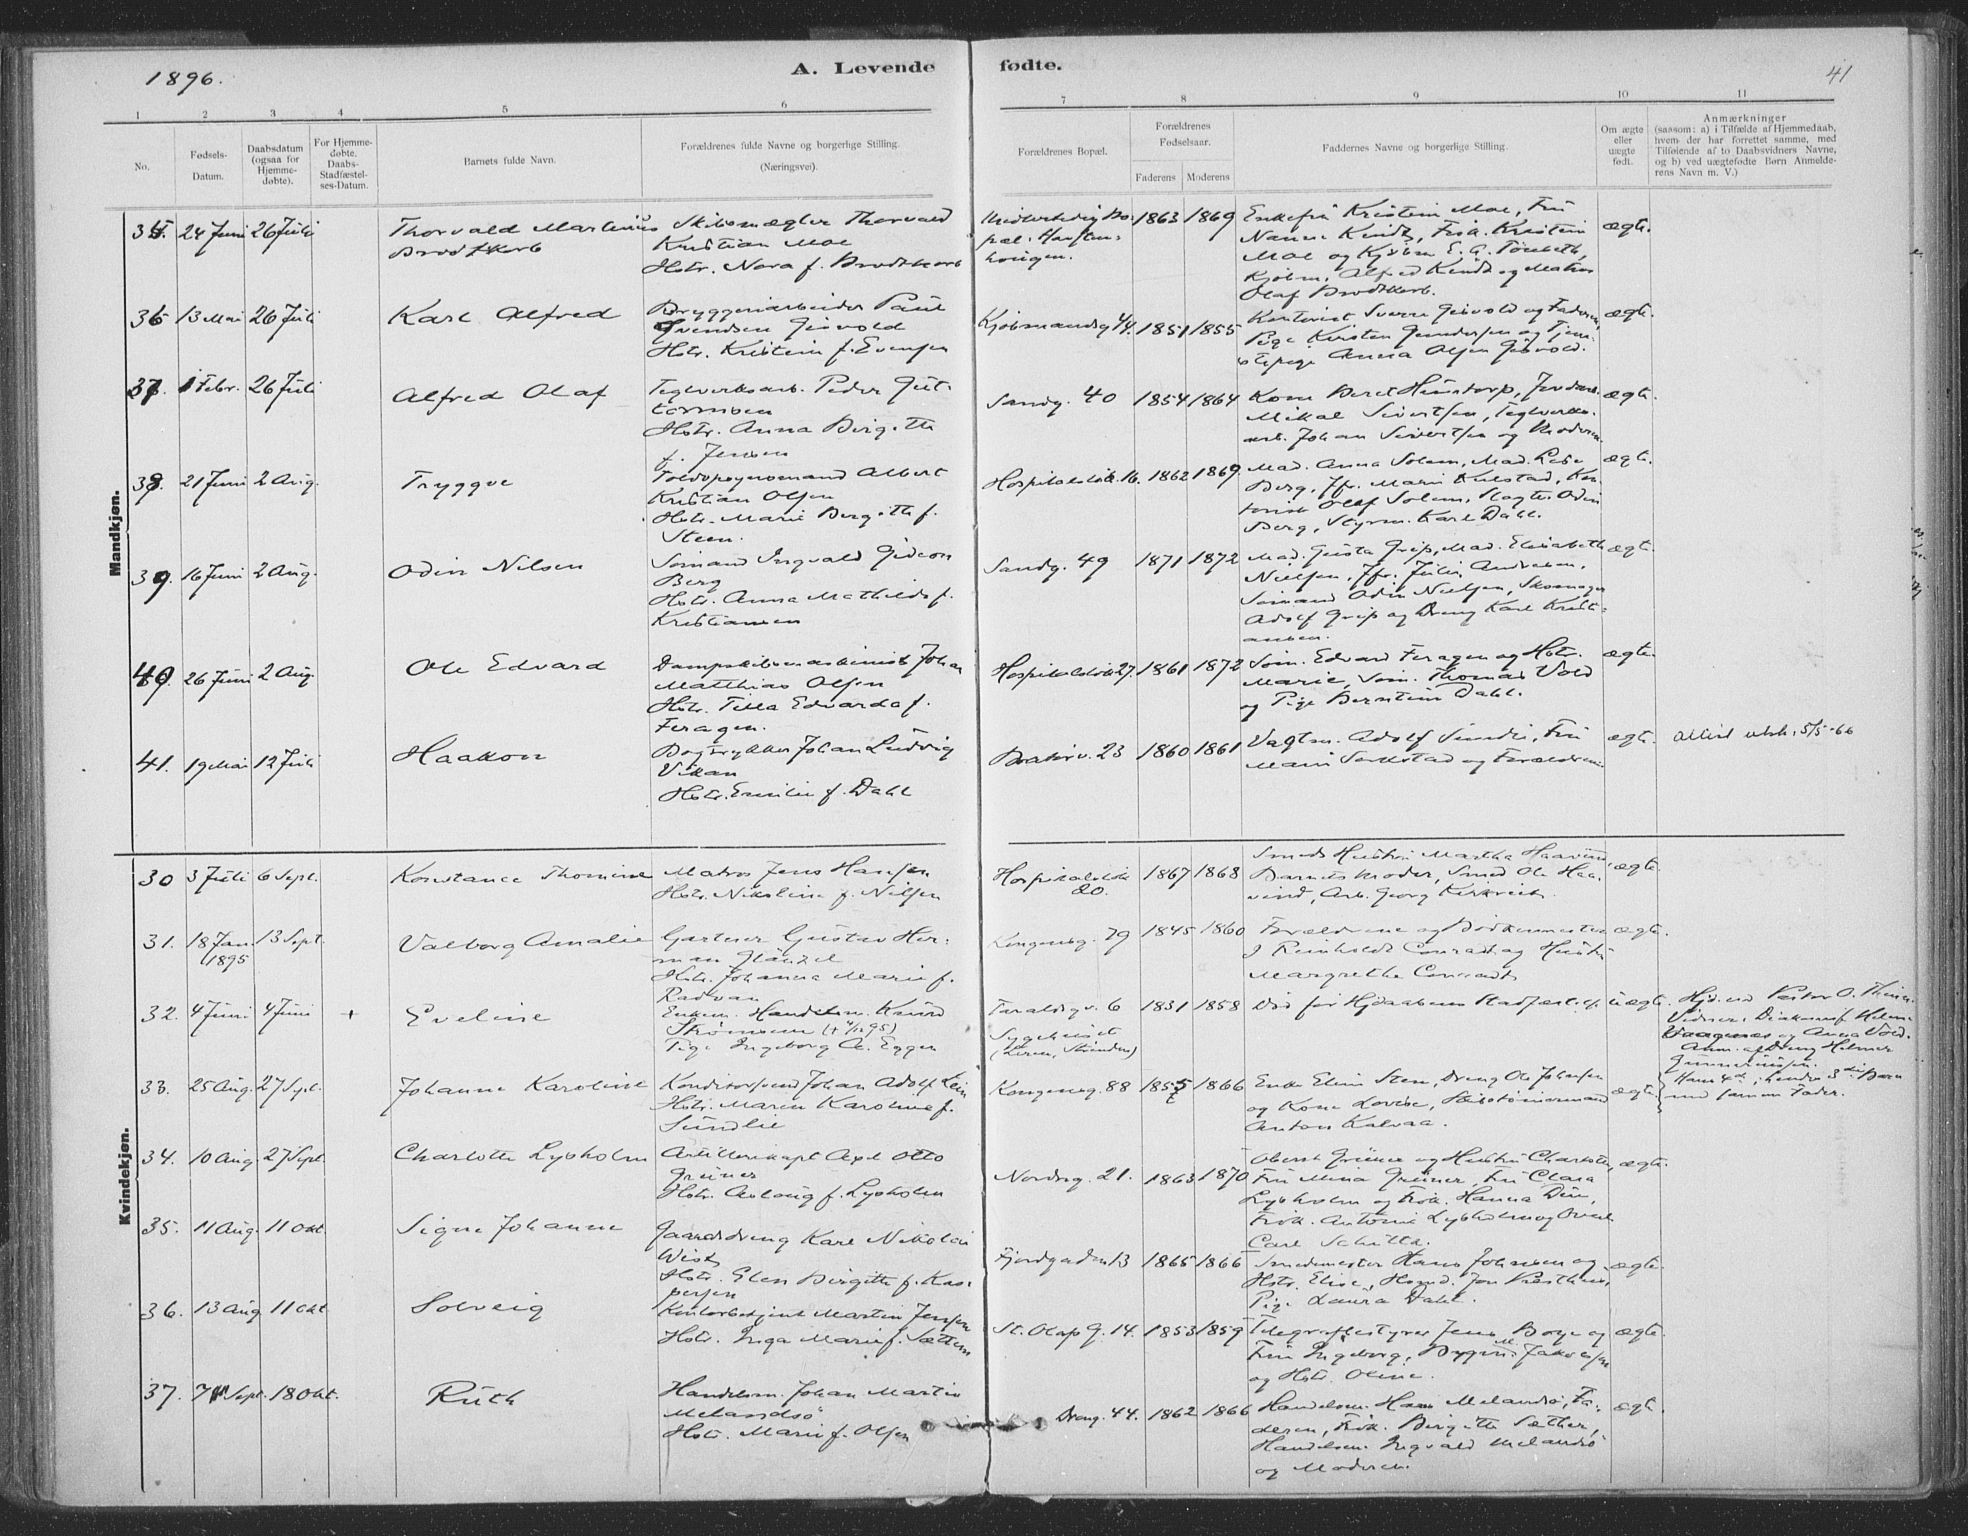 1896.
A. Levende fødte.
41
1 2 3 4 5 6 7 8 9 10 11
No.
Fødsels-Datum.
Daabsdatum (ogsaa for Hjemmedøbte).
For Hjemmedøbte. Daabs-Stadfæstelses-Datum.
Barnets fulde Navn.
Forældrenes fulde Navne og borgerlige Stilling.
(Næringsvei).
Forældrenes Bopæl.
Forældrenes Fødselsaar.
Faderens Moderens
Faddernes Navne og borgerlige Stilling.
Om ægte eller uægte født.
Anmærkninger
(saasom: a) i Tilfælde af Hjemmedaab, hvem der har forrettet samme, med Tilføiende af to Daabsvidners Navne, og b) ved uægtefødte Børn Anmelderens Navn m. V.)
Mandkjøn.
35. 24 Juni 26 Juli Thorvald Martinius Brodtkorb
Skibsmægler Thorvald
Kristian Moe
Hstr. Nora f. Brodtkorb
1863 1869
Enkefru Kristein Moe, Fru
Nanna Kindt, Frøk. Kristein
Moe og Kjøbm. E. A. Tønseth,
Kjøbm. Alfred Kindt og Matros
Olaf Brodtkorb.
ægte.
36 13 Mai 26 Juli Karl Alfred
Bryggeriarbeider Paul
Svendsen Gisvold
Hstr. Kristein f. Evensen
Kjøbmandsg. 44. 1851 1855
Kontorist Sverre Gisvold og Faderen,
Pige Kirsten Gundersen og Tjene-
stepige Anna Olsen Gisvold.
ægte.
37 1 Febr. 26 Juli Alfred Olaf
Teglverksarb. Peder Gut-
tormsen
Hstr. Anna Birgitte
f. Jensen
Sandg. 40 1854 1864
Kone Beret
Mikal Sivertsen, Teglverks-
arb. Johan Sivertsen og Moderen
ægte.
38. 21 Juni 2 Aug. Tryggve
Toldopsynsmand Albert
Kristian Olsen
Hstr. Marie Bergitte f.
Steen.
16. 1862 1869.
Mad. Anna Solem, Mad. Lise
Berg, Jfr. Marie Kulstad, Kon-
torist Olaf Solem, Slagter Odin
Berg, Styrm. Karl Dahl.
ægte.
39. 16 Juni 2 Aug. Odin Nilsen
Sømand Ingvald Gideon
Berg
Hstr. Anna Mathilde f.
Kristiansen
Sandg. 49 1871 1872
Mad. Gusta Grip, Mad. Elisabeth
Nielsen, Jfr. Julie Andresen,
Sømand Odin Nielsen, Skomager
Adolf Grip og Dreng Karl Kristi-
ansen.
ægte.
40. 26 Juni 2 Aug. Ole Edvard
Dampskibsmaskinist Johan
Matthias Olsen
Hstr. Tilla Edvarda f.
Feragen.
27. 1861 1872
Søm. Edvard Feragen og Hstr.
Marie, Søm. Thomas Vold
og Pige Berntine Dahl.
ægte.
41. 19 Mai 12 Juli Haakon
Bogtrykker Johan Ludvig
Vikan
Hstr. Emilie f. Dahl
23 1860 1861
Vagtm. Adolf
Marie og Forældrene
ægte. Attest utst. 5/5-66
Kvindekjøn.
30 3 Juli 6 Sept. Konstance Thomine
Matros Jens Hansen
Hstr. Nikoline f. Nilsen
20. 1867 1868
Smeds Hustru Martha Haavind,
Barnets Moder, Smed Ole Haa-
vind, Arb. Georg
ægte.
31. 18 Jan. 1895 13 Sept. Valborg Amalie
Gartner Gustav Her-
man Glänzel
Hstr. Johanna Marie f.
Radvan
Kongensg. 79 1845 1860
Forældrene og Bødkermester
J. Reinholdt Conradt og Hustru
Margrethe Conradt
ægte.
32. 4 Juni 4 Juni + Eveline
Enkem. Handelsm. Knud
Strømsem (+ 4/12 95)
Pige Ingeborg A. Eggen
6 1831 1858
Sygehuset
(Leren, Strinden)
Død før Hjdaabens Stadfæstelse
uægte.
Hjd. ved Pastor O.
Vidner: Diakonisse
Vaagenes og Anna Vold.
Anm. af Dreng Helmer
Gunneriusen.
Hans 4de, hendes 3die Barn
med samme Fader.
33. 25 Aug. 27 Sept. Johanne Karoline
Konditorsvend Johan Adolf Lein
Hstr. Maren Karoline f.
Sundlie
Kongensg. 88 1855 1866
Enke Elen Sten, Dreng Ole Johansen
og Kone Lovise, Skibstømmermand
Anton Kalvaa.
ægte.
34. 10 Aug. 27 Sept. Charlotte Lysholm
Artillerikapt. Axel Otto
Grüner
Hstr. Aslaug f. Lysholm
Nordreg. 21. 1863 1870
Oberst Grüner og Hustru Charlotte,
Fru Mina Grüner, Fru Clara
Lysholm og Frøk. Hanna Due,
Frøk. Antonie Lysholm og
Carl Schulth.
ægte.
35. 11 Aug. 11 Okt. Signe Johanne
Gaardsdreng Karl Nikolai
Wist
Hstr. Elen Birgitte f. Kas-
persen
Fjordgaden 13 1865 1866
Smedmester Hans Johnsen og
Hstr. Elise, Husmd. Jon
Pige Laura Dahl.
ægte.
36. 13 Aug. 11 Okt. Solveig
Kontorbetjent Martin Jensen
Hstr. Inga Marie f. Sættem
St. Olafs G. 14. 1853 1859
Telegrafbestyrer Jens Boye og
Fru Ingeborg, Bygm. Jakobsen
og Hstr. Oline.
ægte.
37. 7 Sept. 18 Okt. Ruth
Handelsm. Johan Martin
Melandsø
Hstr. Marie f. Olsen
Drong. 44. 1862 1866
Handelsm. Hans Melandsø, Fa-
deren, Frøk. Birgitte Sæther,
Handelsm. Ingvald Melandsø
og Moderen.
ægte.